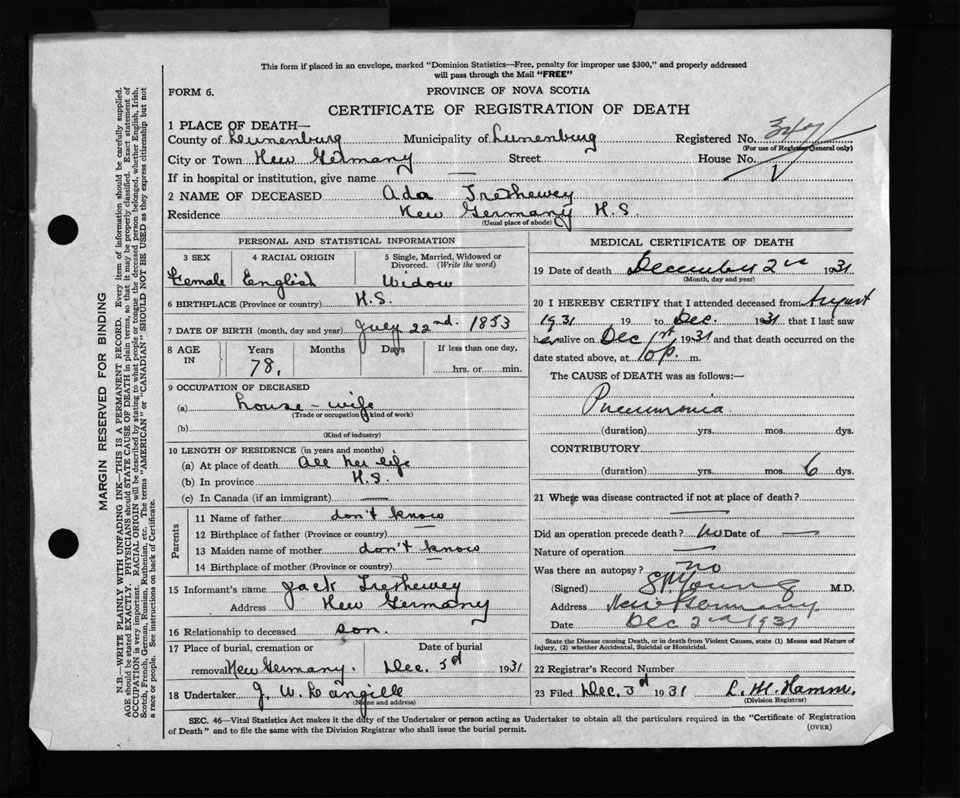 This form if placed in an envelope, marked "Dominion Statistics—Free, penalty for improper use $300," and properly addressed
will pass through the Mail "FREE"
FORM 6.
PROVINCE OF NOVA SCOTIA
CERTIFICATE OF REGISTRATION OF DEATH
1 PLACE OF DEATH—
County of Lunenburg Municipality of Lunenburg Registered No.
(For use of Registrar General only)
City or Town New Germany Street House No.
If in hospital or institution, give name —
2 NAME OF DECEASED Ada Trethewey
Residence New Germany N.S.
(Usual place of abode)
PERSONAL AND STATISTICAL INFORMATION
3 SEX 4 RACIAL ORIGIN 5 Single, Married, Widowed or
Divorced. (Write the word)
Female English Widow
6 BIRTHPLACE (Province or country) N.S.
7 DATE OF BIRTH (month, day and year) July 22nd. 1853
8 AGE IN Years Months Days If less than one day,
78, hrs. or min.
9 OCCUPATION OF DECEASED
(a) house-wife
(Trade or occupation, kind of work)
(b)
(Kind of industry)
10 LENGTH OF RESIDENCE (in years and months)
(a) At place of death All her life
(b) In province N.S.
(c) In Canada (if an immigrant) —
Parents
11 Name of father don't know
12 Birthplace of father (Province or country) —
13 Maiden name of mother don't know
14 Birthplace of mother (Province or country) —
15 Informant's name Jack Trethewey
Address New Germany
16 Relationship to deceased son.
17 Place of burial, cremation or Date of burial
removal New Germany. Dec. 3d 1931
18 Undertaker J. W.
(Name and address)
MEDICAL CERTIFICATE OF DEATH
19 Date of death December 2nd 1931
(Month, day and year)
20 I HEREBY CERTIFY that I attended deceased from August
1931 19 to Dec. 1931 that I last saw
her alive on Dec 1st 1931 and that death occurred on the
date stated above, at 10 p. m.
The CAUSE of DEATH was as follows:—
Pneumonia
(duration) yrs. mos. dys.
CONTRIBUTORY
(duration) yrs. mos. 6 dys.
21 Where was disease contracted if not at place of death?
—
Did an operation precede death? no Date of —
Nature of operation —
Was there an autopsy? no
(Signed) Young M.D.
Address New Germany
Date Dec 2nd 1931
State the Disease causing Death, or in death from Violent Causes, state (1) Means and Nature of
Injury, (2) whether Accidental, Suicidal or Homicidal.
22 Registrar's Record Number
23 Filed Dec. 3d 1931 L. M. Hamm.
(Division Registrar)
SEC. 46—Vital Statistics Act makes it the duty of the Undertaker or person acting as Undertaker to obtain all the particulars required in the "Certificate of Registration
of Death" and to file the same with the Division Registrar who shall issue the burial permit.
(OVER)
MARGIN RESERVED FOR BINDING
N.B.—WRITE PLAINLY WITH UNFADING INK—THIS IS A PERMANENT RECORD. Every item of information should be carefully supplied.
AGE should be stated EXACTLY. PHYSICIANS should STATE CAUSE OF DEATH in plain terms, so that it may be properly classified. Exact statement of
OCCUPATION is very important. RACIAL ORIGIN will be described by stating to what people or tongue the deceased person belonged, whether English, Irish,
Scotch, French, German, Russian, Ruthenian, etc. The terms "AMERICAN" or "CANADIAN" SHOULD NOT BE USED as they express citizenship but not
a race or people. See instructions on back of Certificate.